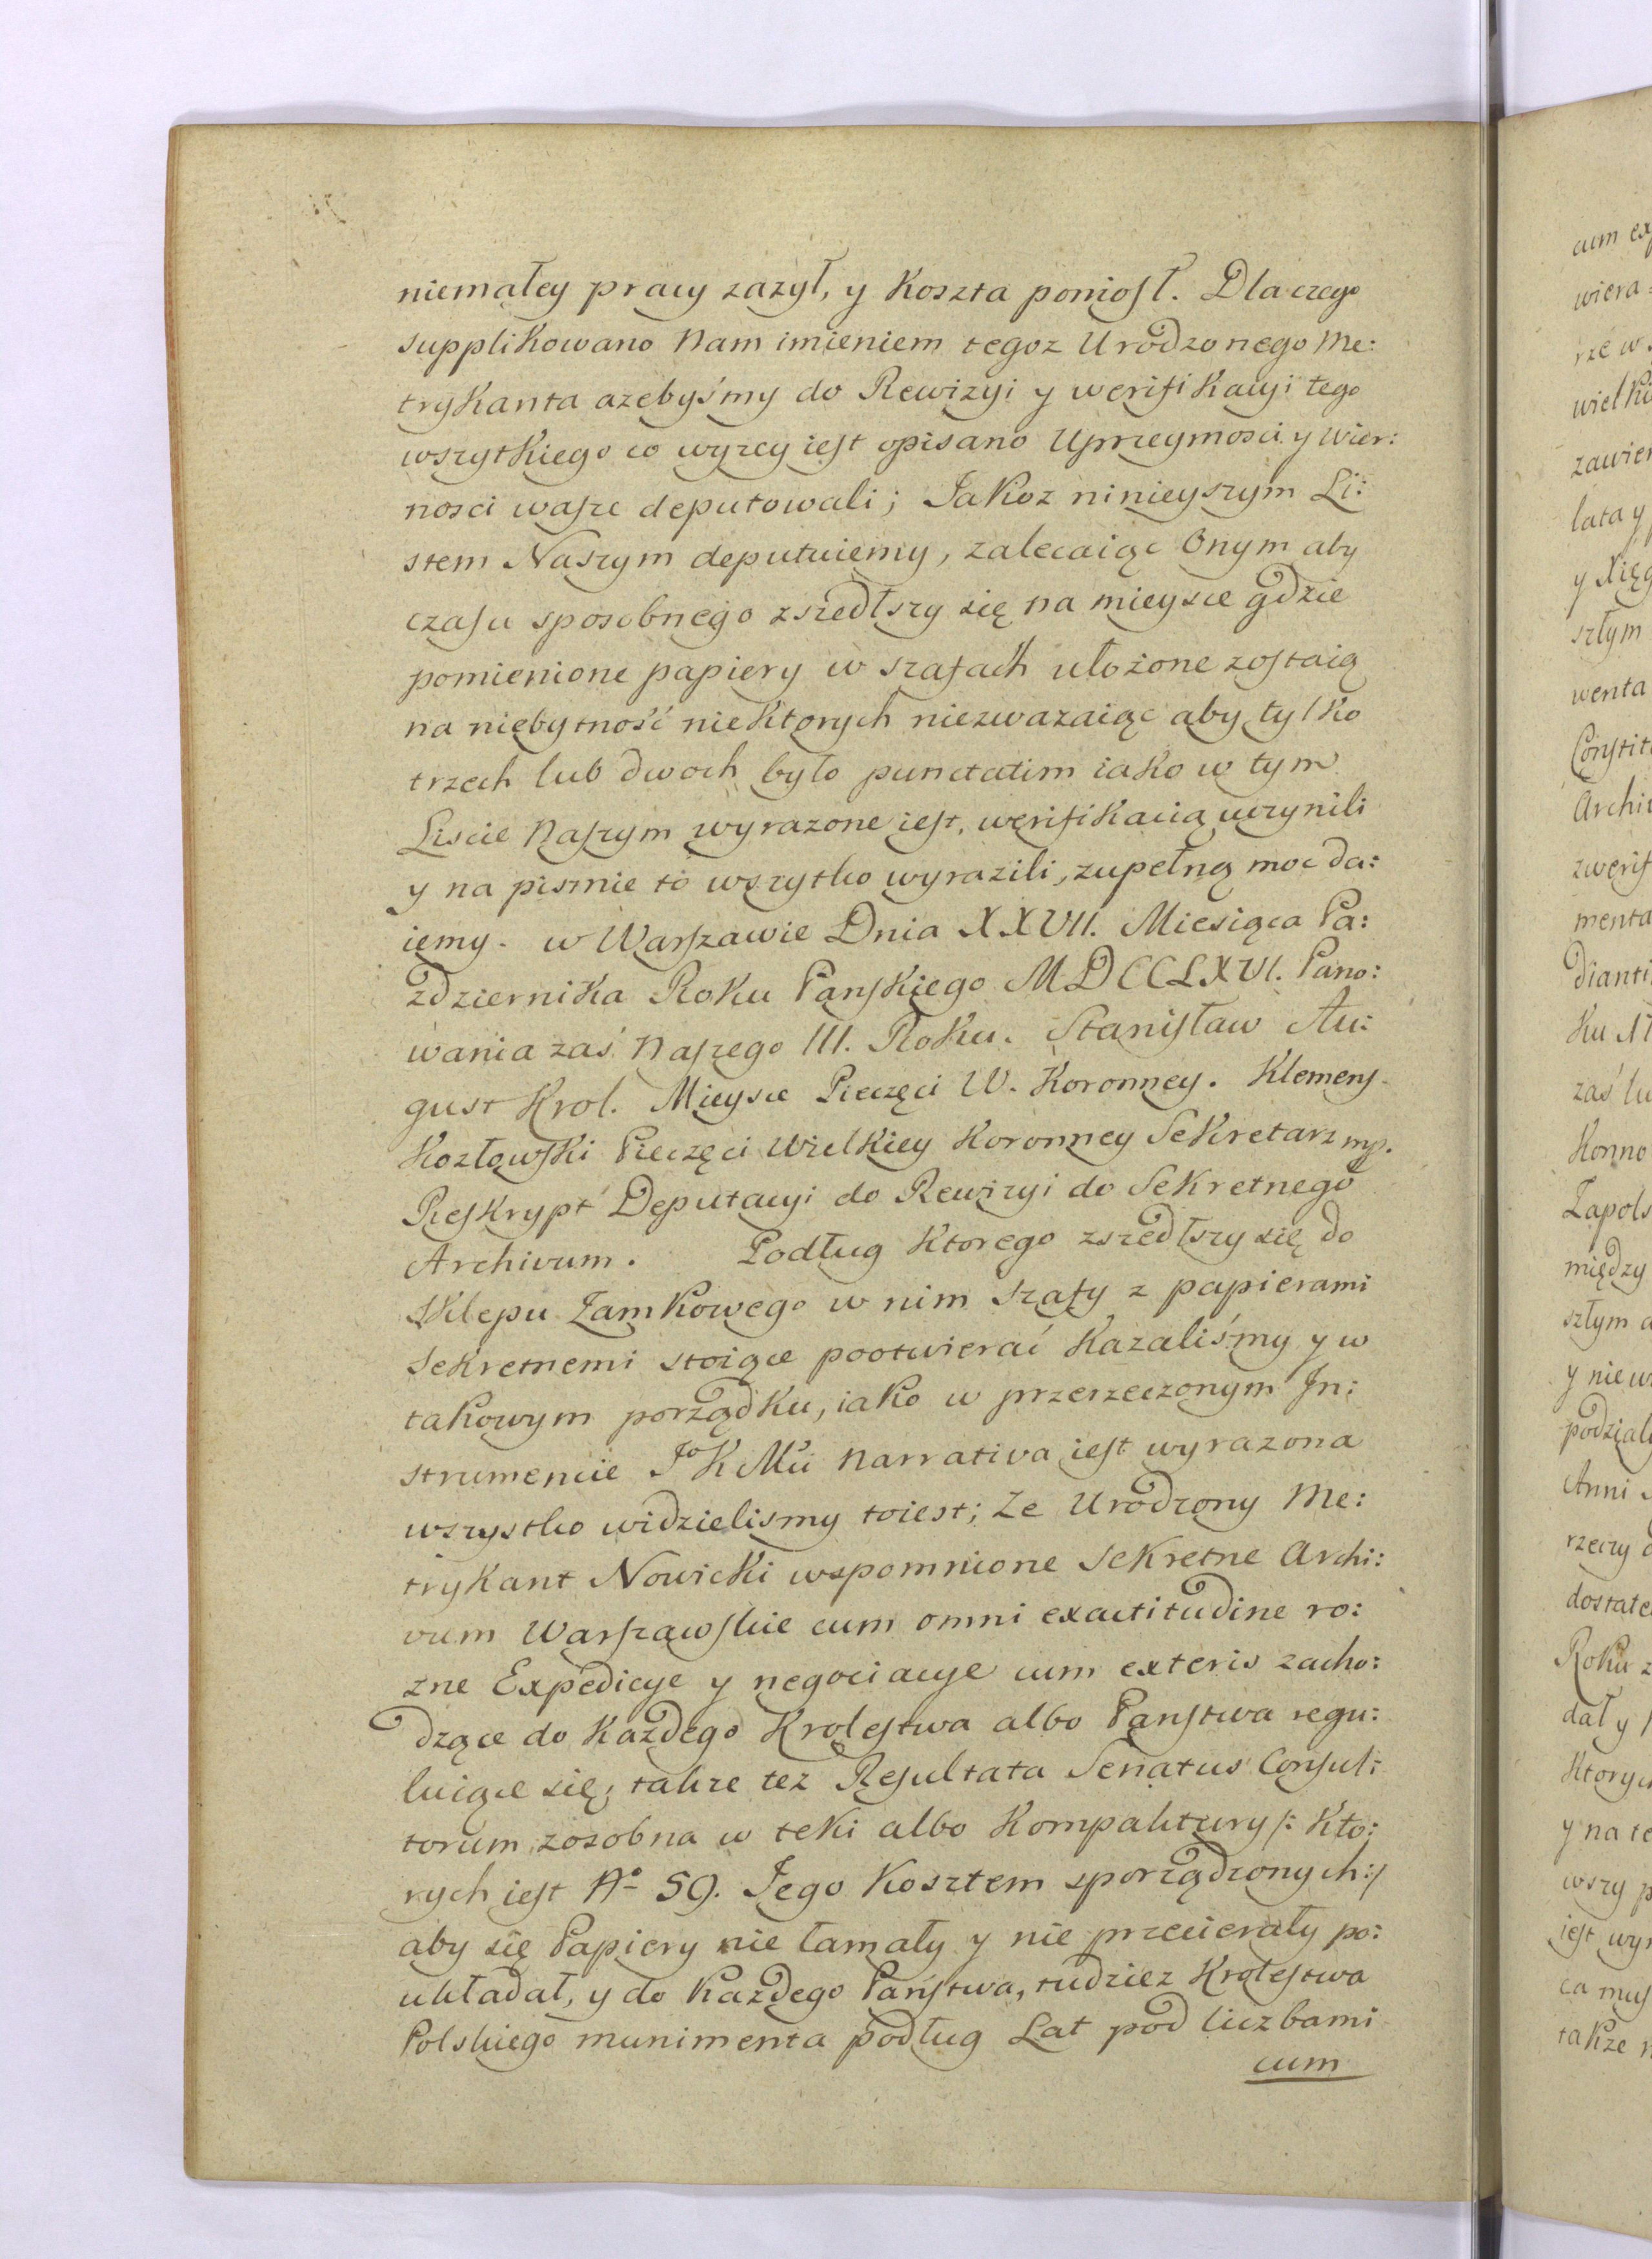 niemałey pracy zazył, y Koszta poniosł. Dla czego
supplikowano Nam imieniem tegoz Urodzonego Me:
trykanta azebyśmy do Rewizyi y werifikacyi tego
wszytkiego co wyzey iest opisano Uprzeymosci y Wier:
nosci wasze deputowali; Jakoz ninieyszym Li:
stem Naszym deputuiemy, zalecaiąc Onym aby
czasu sposobnego zszedłszy się na mieysce gdzie
pomienione papiery w szafach ułożone zostaią
na niebytność niektorych niezwazaiąc aby tylko
trzech lub dwoch było punctatim iako w tym
Liscie Naszym wyrazone iest, werifikacią uczynili
y na pismie to wszytko wyrazili, zupełną moc da:
iemy. w Warszawie Dnia XXVII. Miesiąca Pa:
zdziernika Roku Panskiego MDCCLXVI. Pano:
wania zaś Naszego III. Roku. Stanisław Au:
gust Krol. Mieysce Pieczęci W. Koronney. Klemens
Kozłowski Pieczęci Wielkiey Koronney Sekretarz mp.
Reskrypt Deputacyi do Rewizyi do Sekretnego
Archivum. Podług ktorego zszedłszy się do
Sklepu Zamkowego w nim szafy z papierami
Sekretnemi stoiące pootwierać kazaliśmy y w
takowym porządku, iako w przerzeczonym In:
strumencie JoKMci narrativa iest wyrazona
wszystko widzielismy toiest; Ze Urodzony Me:
trykant Nowicki wspomnione Sekretne Archi:
vum Warszawskie cum omni exactitudine ro:
zne Expedicye y negociacye cum exteris zacho:
dzące do kazdego Krolestwa albo Panstwa regu:
luiące się, takze tez Resultata Senatus Consul:
torum zosobna w teki albo Kompaktury /: kto:
rych iest No 59. Jego Kosztem sporządzonych :/
aby się Papiery nie łamały y nie przecierały po:
układał, y do Kazdego Państwa, tudziez Krolestwa
Polskiego munimenta podług Lat pod liczbami
cum
cum
wiera
wielki
lata y
szłym
wenta
Archi
menta
dianti
zaś
Konno
między
szłym
Anni
rzeczy
Roku
dał y
y na
wszy
także